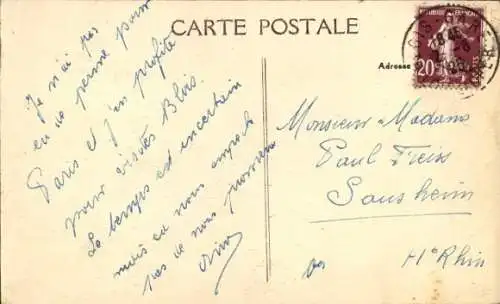 CARTE POSTALE
Adresse
REPUBLIQUE FRANÇAISE
20
Je n'ai pas
eu de peine pour
Paris et j'en profite
pour visiter Blois.
Le temps est incertain
mais ça nous empêche
pas de nous promener
Monsieur - Madame
Paul Freiss
Sausheim
Ht Rhin